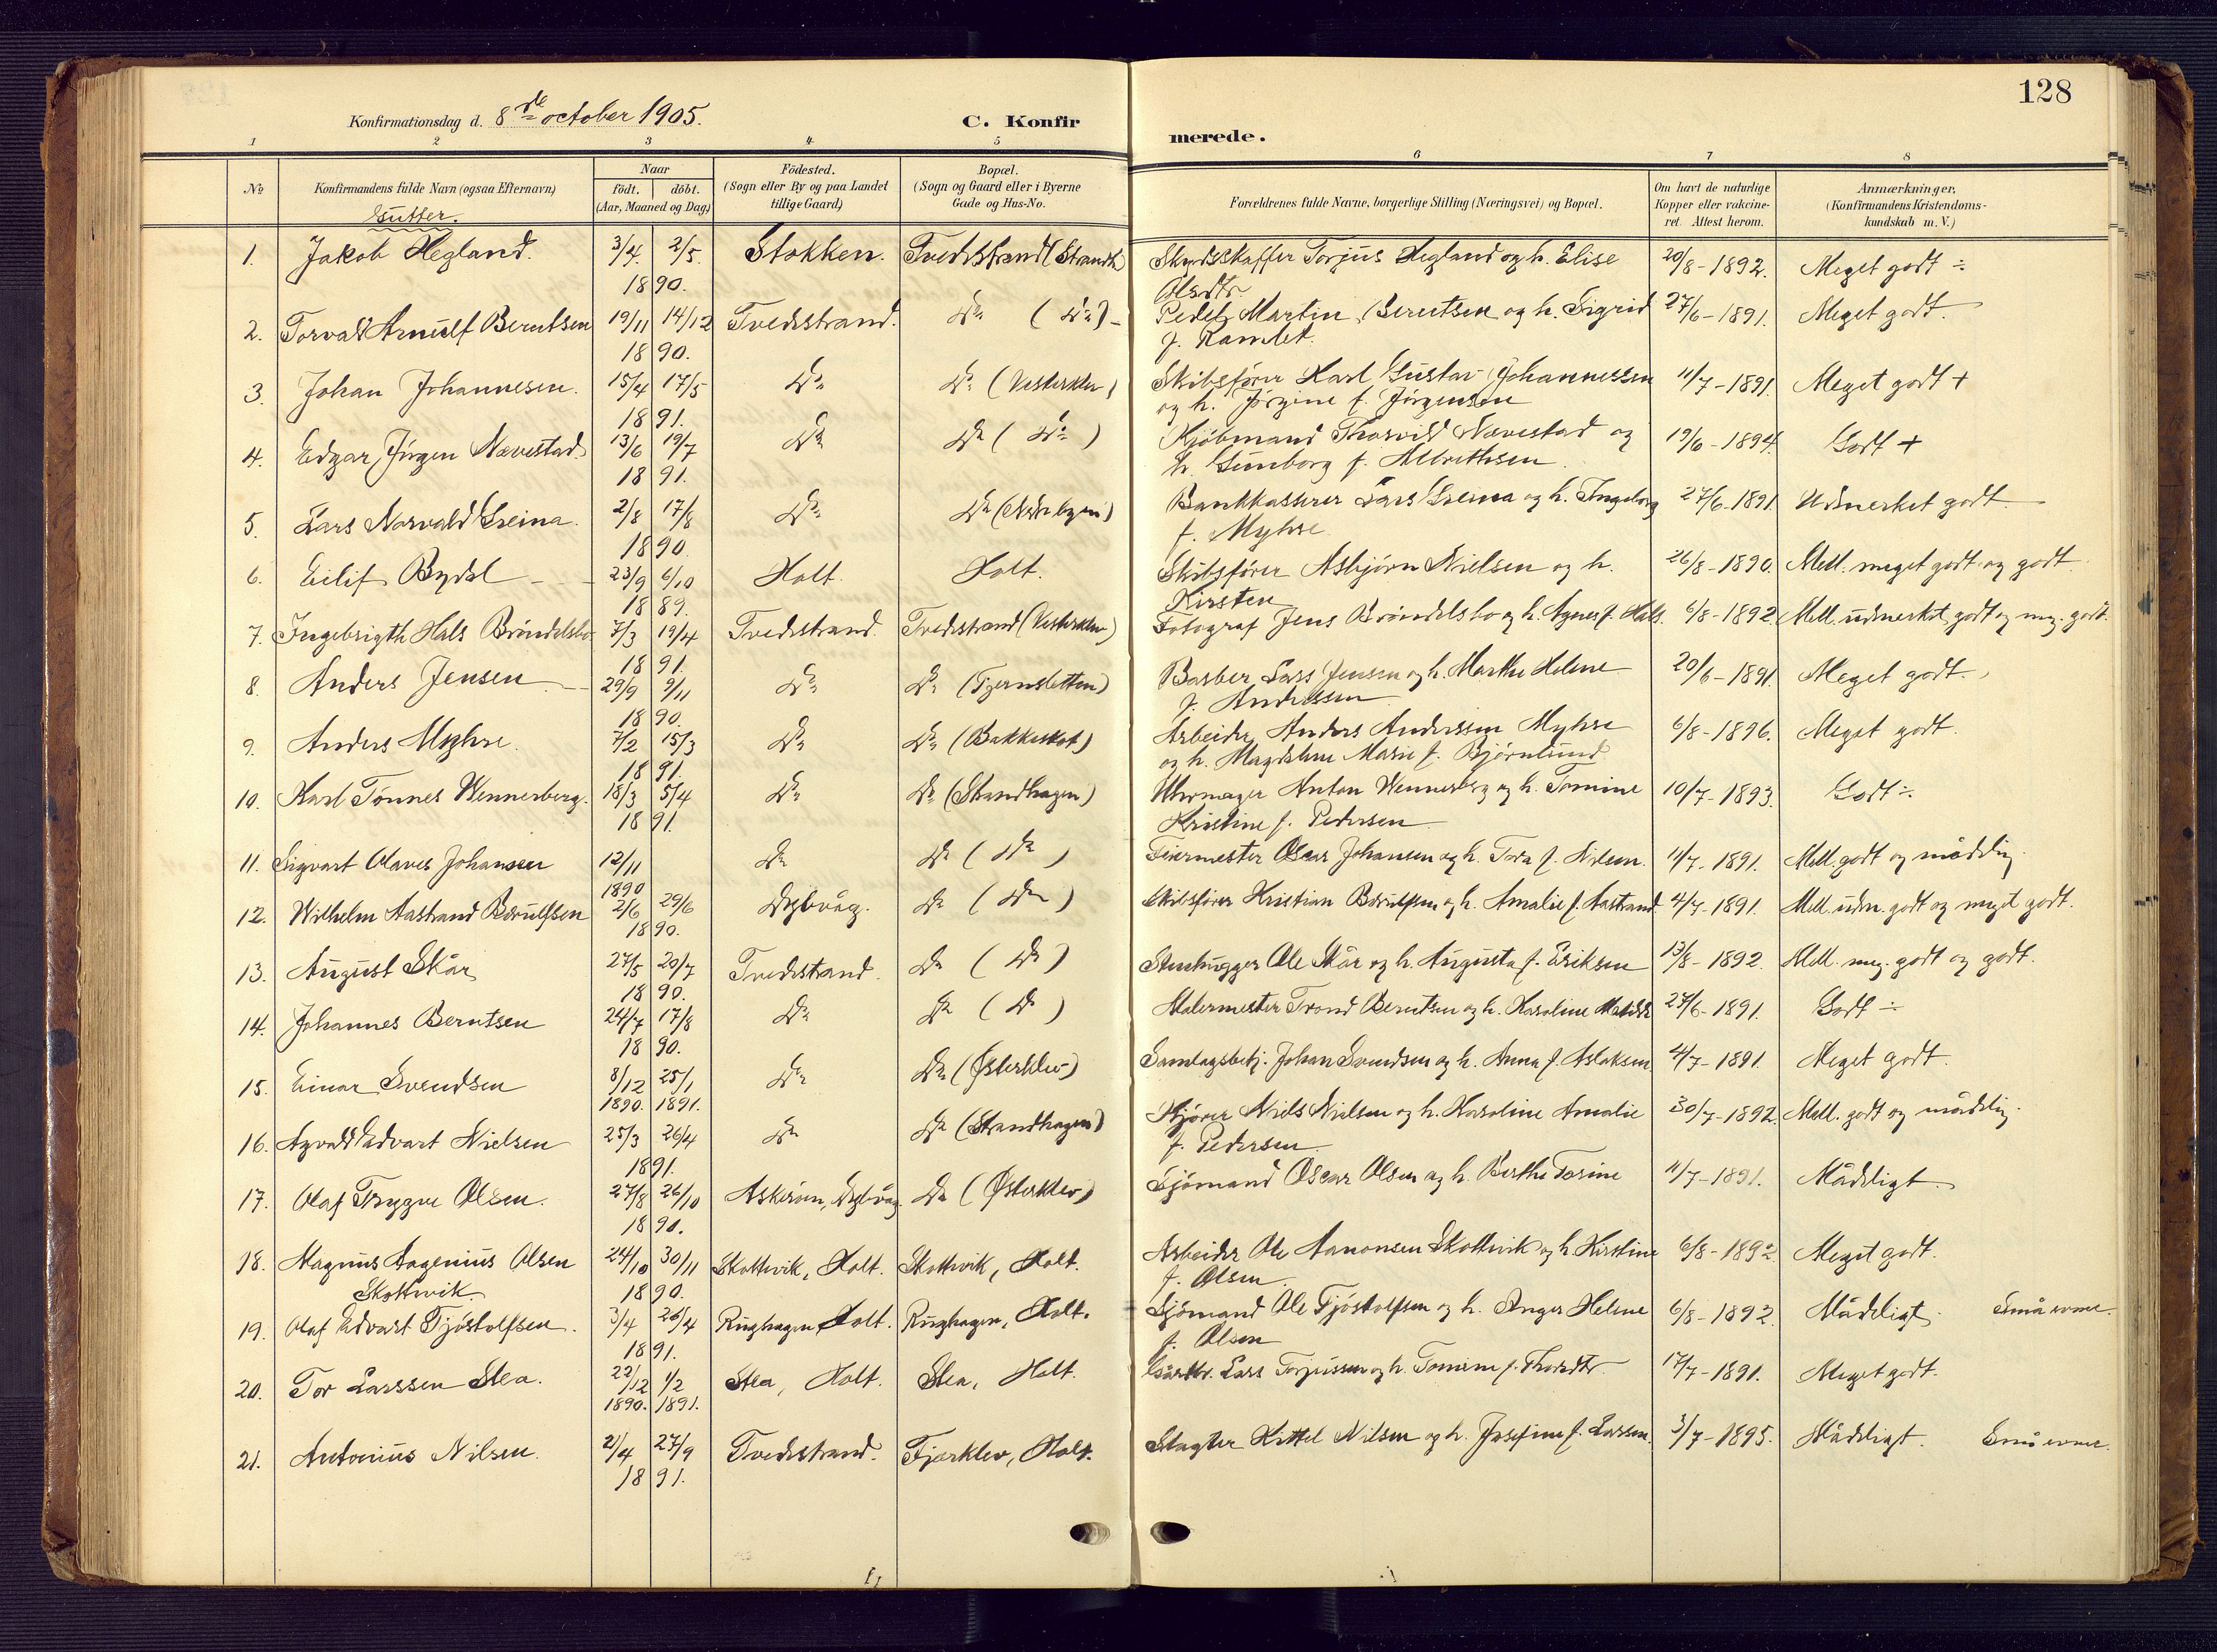 128
Konfirmationsdag d. 8de october 1905.
C. Konfirmerede.
1 2 3 4 5 6 7 8
No.
Konfirmandens fulde Navn (ogsaa Efternavn)
Naar
födt. döbt.
(Aar, Maaned og Dag)
Födested.
(Sogn eller By og paa Landet
tillige Gaard)
Bopæl.
(Sogn og Gaard eller i Byerne
Gade og Hus-No.
Forældrenes fulde Navne, borgerlige Stilling (Næringsvei) og Bopæl.
Om havt de naturlige
Kopper eller vakcine-
ret. Attest herom.
Anmærkninger.
(Konfirmandens Kristendoms-
kundskab m. V.)
Gutter.
1. Jakob Hegland. 3/4. 2/5. Stokken. Tvedestrand (Strandh) Skydsskaffer Torjus Hegland og h. Elise 20/8-1892. Meget godt ÷
1890. Olsdtr.
2. Torvald Arnulf Berntsen 19/11 14/12 Tvedestrand. Do (Do) Martin Berntsen og h. Sigrid 27/6-1891. Meget godt.
1890. f. Ramlet.
3. Johan Johannesen. 15/4 17/5 Do Do (Vesterklev) Skibsfører Karl Gustav Johannessen 11/7-1891. Meget godt +
1891. og h. Jørgine f. Jörgensen
4. Edgar Jörgen Nævestad. 13/6 19/7 Do Do (Do) Kjöbmand Thorvild Nævestad og 19/6-1894. Godt +
1891. h. Gunborg f. Albrethsen.
5. Lars Norvald Greina. 2/8 17/8 Do Do Bankkasserer Lars Greina og h. Ingeborg 27/6-1891 Udmerket godt.
1890. f. Myhre
6. Eilif Bydal 23/9 6/10 Holt. Holt. Skibsfører Asbjørn Nielsen og h. 26/8-1890. Mell. meget godt og godt.
1889. Kirsten
7. Ingebrigth Hals Bröndelsbo 7/3 19/4 Tvedestrand. Tvedestrand (Vesterklev) Fotograf Jens Bröndelsbo og h. Agnes f. Hals. 6/8-1892. Mell. udmerket godt og meg. godt.
1891.
8. Anders Jensen 29/9 9/11 Do Do (Tjernsletten) Barber Lars Jensen og h. Marthe Helene 20/6-1891. Meget godt.
1890. f. Andersen
9. Anders Myhre. 7/2 15/3 Do Do (Bakkeskot) Arbeider Anders Anderssen Myhre 6/8-1896. Meget godt.
1891. og h. Magdalene Marie f. Bjørnlund
10. Karl Tønnes Wennerberg. 18/3 5/4 Do Do (Strandhagen) Uhrmager Anton Wennerberg og h. Tomine 10/7-1893. Godt ÷
1891. Kristine f. Pedersen
11. Sigvart Olaves Johansen 12/11 Do Do (Do) Feiermester Oscar Johansen og h. Tora f. Nilsen. 11/7-1891. Mell. godt og mådelig.
1890
12. Wilhelm Aastrand Börulfsen 2/6 29/6 Dybvåg. Do (Do) Skibsfører Kristian Börulfsen og h. Amalie f. Aastrand. 4/7-1891. Mell. udm. godt og meget godt.
1890.
13. August Skår 27/5 20/7 Tvedestrand. Do (Do) Stenhugger Ole Skår og h. Augusta f. Eriksen 13/8-1892. Mell. meg. godt og godt.
1890.
14. Johannes Berntsen 24/7 17/8 Do Do (Do) Malermester Trond Berntsen og h. Karoline 27/6-1891. Godt ÷
1890.
15. Einar Svendsen 8/12 25/1 Do Do (Østerklev) Samlagsbetj. Johan Svendsen og h. Anna f. Aslaksen 4/7-1891. Meget godt.
1890. 1891.
16. Agvald Edvart Nielsen 25/3 26/4 Do Do (Strandhagen) Kjörer Niels Nielsen og h. Karoline Amalie 30/7-1892. Mell. godt og mådelig.
1891. f. Pedersen
17. Olaf Trygve Olsen. 27/8 26/10 Askerøen, Dybvåg. Do (Østerklev) Sjömand Oscar Olsen og h. Berthe Torine 11/7-1891. Mådeligt.
1890.
18. Magnus Aagenius Olsen 24/10 30/11 Skottevik, Holt. Skottevik, Holt. Arbeider Ole Aanonsen Skottevik og h. Kirstine 6/8-1892 Meget godt.
Skottevik 1890. f. Olsen.
19. Olaf Edvart Tjöstolfsen. 3/4 26/4 Ringhagen, Holt. Ringhagen, Holt. Sjömand Ole Tjöstolfsen og h. Anger Helene 6/8-1892. Mådeligt. Små evner.
1891. f. Olsen
20. Tor Larssen Stea. 22/12 1/2 Stea, Holt. Stea, Holt. Gårdbr. Lars Torjussen og h. Tomine f. Thorsdtr. 17/7-1891. Meget godt.
1890. 1891.
21. Antonius Nilsen. 21/4 27/9 Tvedestrand. Fjærklev, Holt. Slagter Kittel Nilsen og h. Josefine f. Larsen. 3/7-1895. Mådeligt. Små evner.
1891.